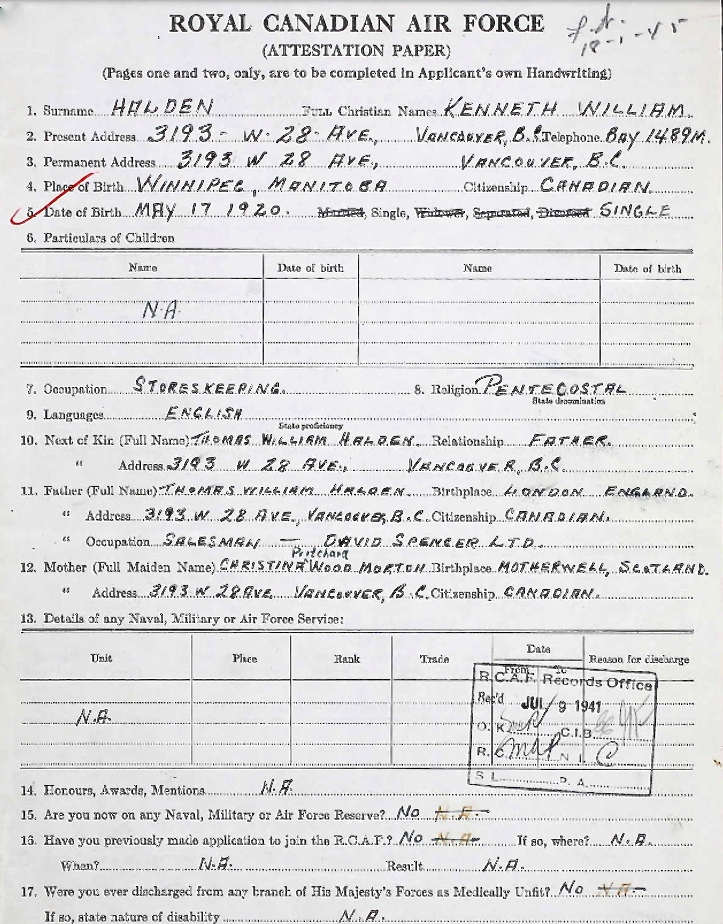 ROYAL CANADIAN AIR FORCE
18-1-45
(ATTESTATION PAPER)
(Pages one and two, only, are to be completed in Applicant's own Handwriting)
1. Surname HALDEN FULL Christian Names KENNETH WILLIAM.
2. Present Address 3193 - W. 28 - AVE., VANCOUVER, B.C. Telephone BAY 1489M.
3. Permanent Address 3193 W 28 AVE., VANCOUVER, B.C.
4. Place of Birth WINNIPEG, MANITOBA Citizenship CANADIAN.
5. Date of Birth MAY 17 1920. Married, Single, Widower, Separated, Divorced SINGLE
6. Particulars of Children
Name Date of birth Name Date of birth
N.A.
7. Occupation STORESKEEPING. 8. Religion PENTECOSTAL
State denomination
9. Languages ENGLISH
State proficiency
10. Next of Kin (Full Name) THOMAS WILLIAM HALDEN. Relationship FATHER.
" Address 3193 W 28 AVE., VANCOUVER, B.C.
11. Father (Full Name) THOMAS WILLIAM HALDEN Birthplace LONDON ENGLAND.
" Address 3193 W 28 AVE, VANCOUVER, B.C. Citizenship CANADIAN.
" Occupation SALESMAN — DAVID SPENCER LTD.
Pritchard
12. Mother (Full Maiden Name) CHRISTINA WOOD MORTON Birthplace MOTHERWELL, SCOTLAND.
" Address 3193 W 28 AVE VANCOUVER, B.C. Citizenship CANADIAN.
13. Details of any Naval, Military or Air Force Service:
Unit Place Rank Trade Date Reason for discharge
From To
R.C.A.F. Records Office
Rec'd JUL 9 1941
N.A.
O.K. C.I.B.
R.C. N I C
S L D. A.
14. Honours, Awards, Mentions N.A.
15. Are you now on any Naval, Military or Air Force Reserve? NO N.A.
16. Have you previously made application to join the R.C.A.F.? NO N.A. If so, where? N.A.
When? N.A. Result N.A.
17. Were you ever discharged from any branch of His Majesty's Forces as Medically Unfit? NO N.A.
If so, state nature of disability N.A.